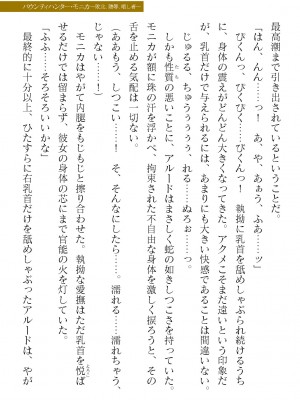 バウンティハンター・モニカ―敗北、捕縛、嬲し者―
最高潮まで引き出されているということだ。
「はん、んん……っ！　あ、や、あぁう、ふあ……ッ」
びくんっ、びくびく……びくんっ！　執拗に乳首を舐めしゃぶられ続けるうち
に、身体の震えがどんどん大きくなってきた。アクメこそまだ遠いという印象だ
が、乳首だけで与えられるには、あまりにも大きい快感であることは間違いない。
じゅるる、ちゅうぅぅぅ、れる……ぬろぉ……っ。
しかも性質の悪いことに、アルードはまさしく蛇の如きしつこさを持っていた。
モニカが額に珠の汗を浮かべ、拘束された不自由な身体を激しく捩ろうと、その
舌を止める気配は一切ない。
（ああもう、しつこい……！　そ、そんなにしたら……。濡れる……濡れちゃう、
じゃない……！）
モニカはやがて内腿をもじもじと擦り合わせた。執拗な愛撫はただ乳首を悦ば
せるだけでは留まらず、彼女の身体の芯にまで官能の火を灯していた。
「ふふ……そろそろいいかな」
最終的に十分以上、ひたすらに右乳首だけを舐めしゃぶったアルードは、やが